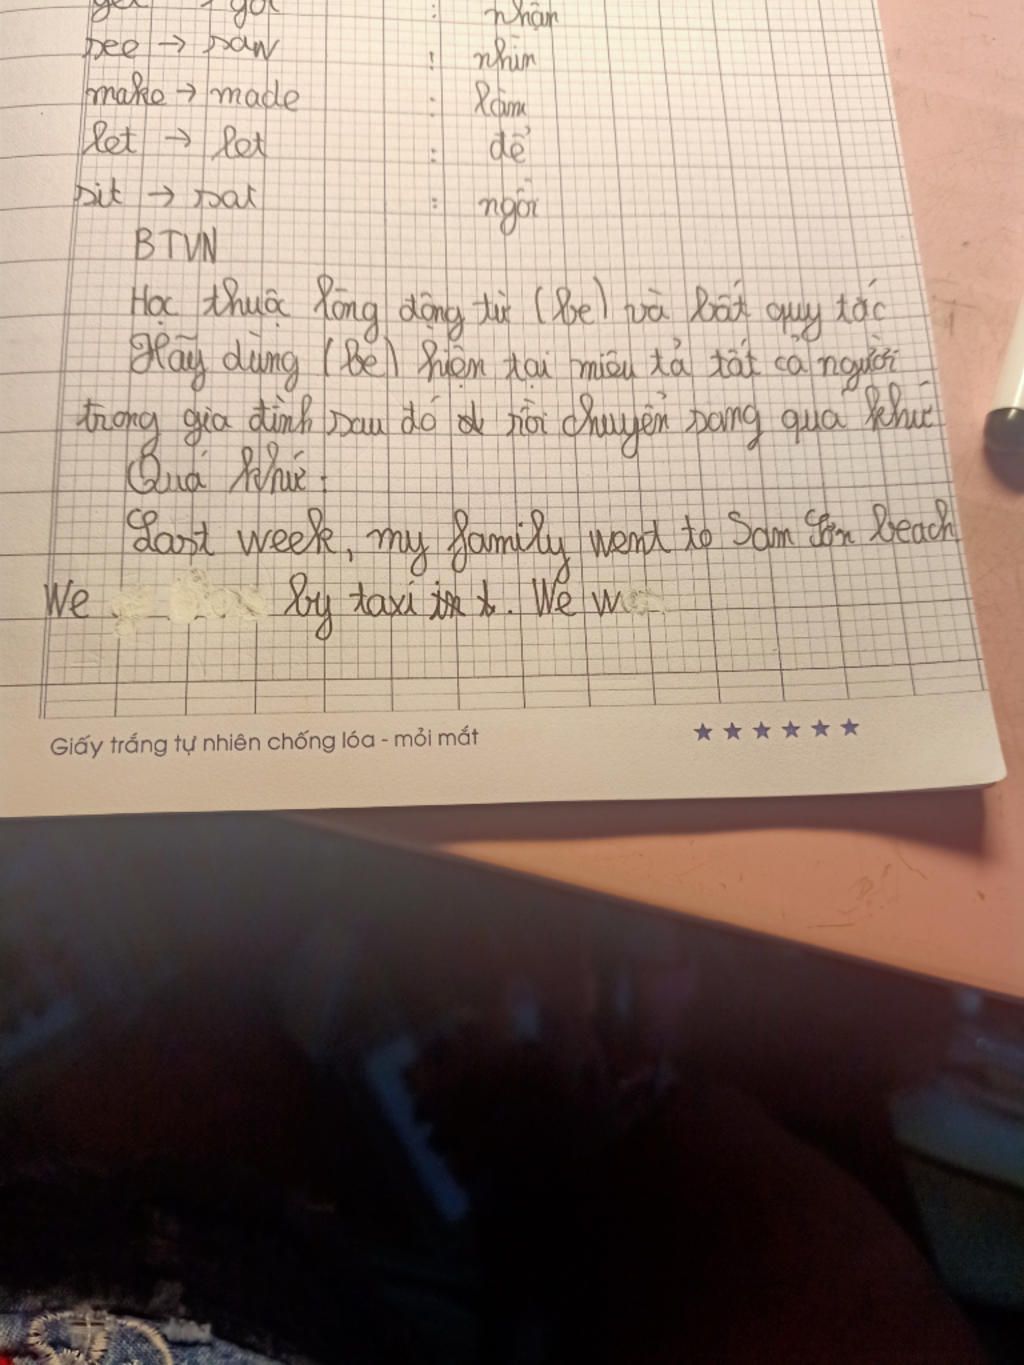 get → got : nhận
see → saw : nhìn
make → made : làm
let → let : để
sit → sat : ngồi
BTVN
Học thuộc lòng động từ (be) và bất quy tắc
Hãy dùng (be) hiện tại miêu tả tất cả người
trong gia đình sau đó rồi chuyển sang quá khứ
Quá khứ:
Last week, my family went to Sam Son beach
We by taxi. We
Giấy trắng tự nhiên chống lóa - mỏi mắt